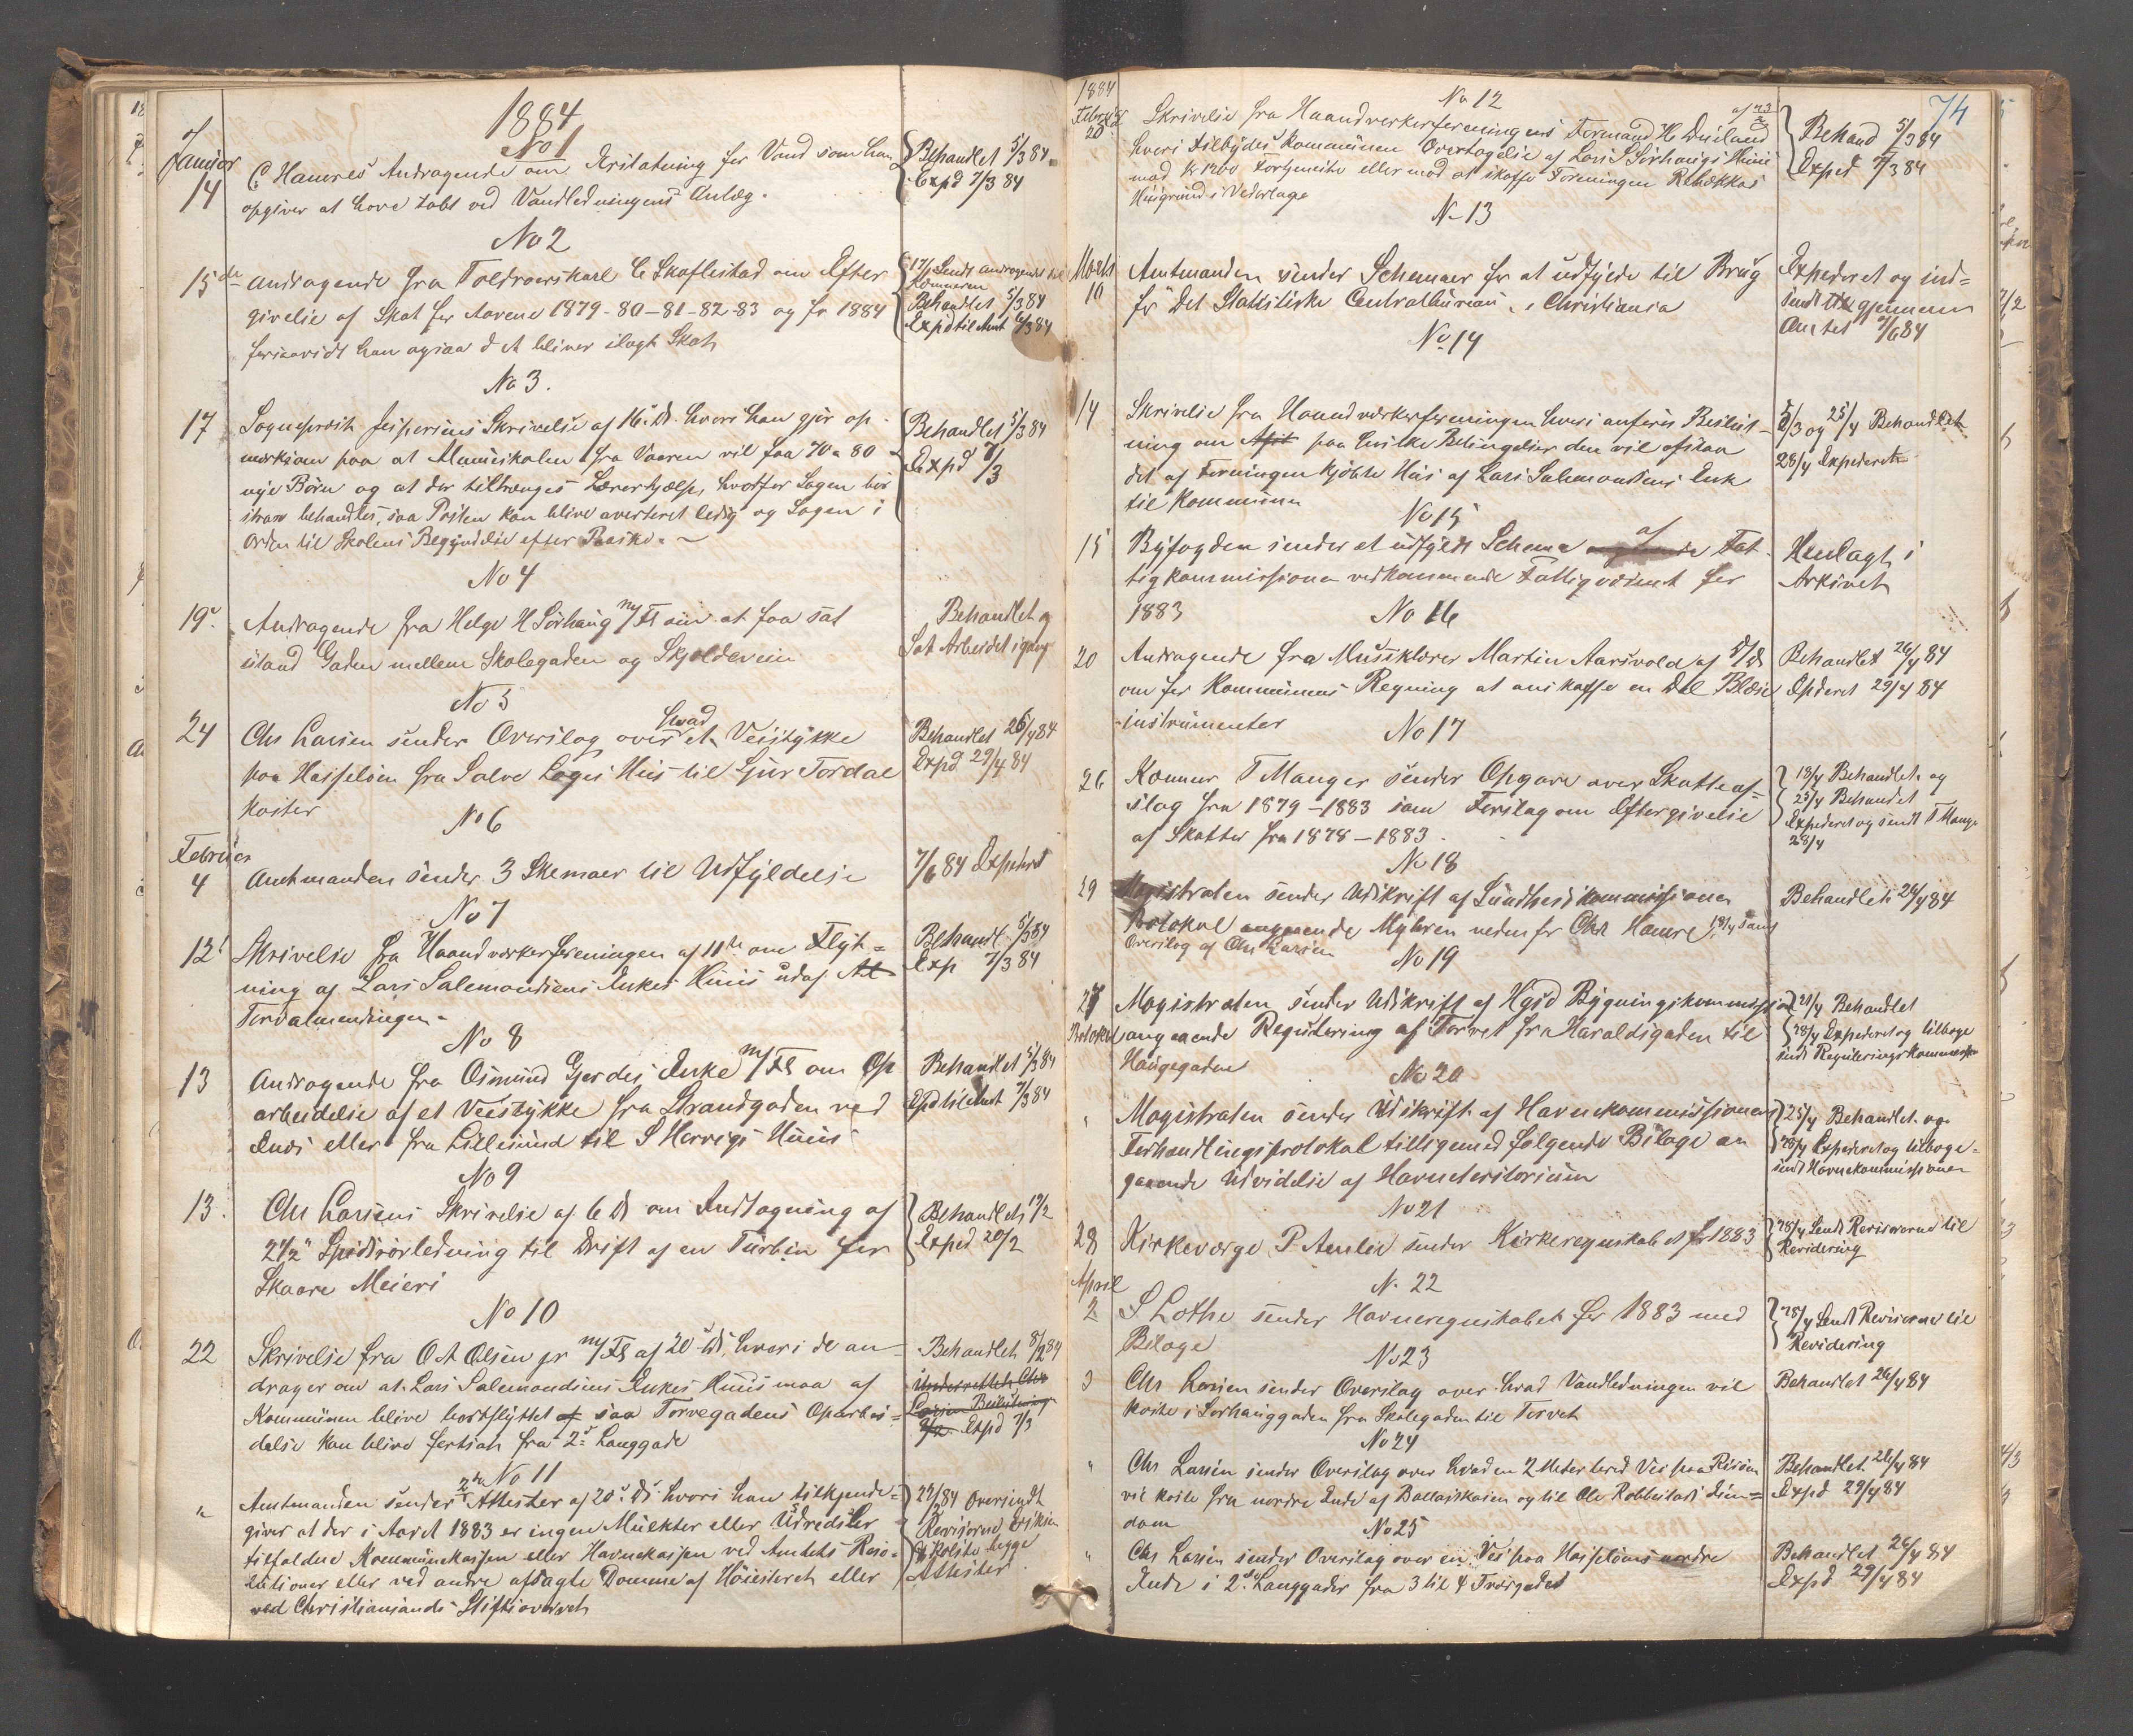 1884
No 1
Januar
14
C. Hamres Andragende om Erstatning for Vand som han
opgiver at have tabt ved Vandledningens Anlæg.
Behandlet 5/3 84
Expd 7/3 84
No 2
15de Andragende fra Toldroerskarl C Skoflestad om Efter
givelse af Skat for Aarene 1879-80-81-82-83 og for 1884
forsaavidt han ogsaa det bliver ilagt Skat
17/1 Sendt Andragendet til
Kæmneren
Behandlet 5/3 84
Expd til Amt 6/3 84
No 3.
17 Sogneprest Jespersens Skrivelse af 16. Ds. hvori han gjør op-
merksom paa at Almueskolen fra Vaaren vil faa 70 a 80
nye Børn og at der tiltrænges Lærerhjælp, hvorfor Sagen bør
strax behandles, saa Posten kan blive averteret ledig og Sagen i
Orden til Skolens Begyndelse efter Paaske.
Behandlet 5/3 84
Expd 7/3
No 4
19. Andragende fra Helge H Sørhaug m/Fl om at faa sat
istand Gaden mellem Skolegaden og Skjoldevein
Behandlet og
Sat Arbeidet igang
No 5
24 Chr Larsen sender Overslag over hvad et Veistykke
paa Hasseløen fra Salve Hus til Sjur Tordal
koster
Behandlet 26/4 84
Expd 29/4 84
No 6
Februar
4 Amtmanden sender 3 Skemaer til Udfyldelse
7/6 84 Expederet
No 7
12 Skrivelse fra Haandverkerforeningen af 11te om Flyt=
ning af Lars Salemonsens Enkes Huus udaf Al
Torvalmendingen.
Behandl. 5/3 84
Exp 7/3 84
No 8
13 Andragende fra Osmund Gjerdes Enke m/Fl om Op
arbeidelse af et Veistykke fra Strandgaden ved
Ends eller fra Lillesund til S Hervigs Huus
Behandlet 5/3 84
Expd til Amt 7/3 84
No 9
13. Chr Larsens Skrivelse af 6 Ds om Indtagning af
2 1/2" Rørledning til Drift af en Turbin for
Skaare Meieri
Behandlet 19/2
Exped 20/2
No 10
22 Skrivelse fra O A Olsen pr m/Fl af 20 Ds, hvori de an-
drager om at Lars Salemonsens Enkes Huus maa af
Kommunen blive bortflyttet af saa Torvegadens Oparbei=
delse kan blive fortsat fra 2. Langgade
Behandlet 84
Underrettet Chr
Larsen Beslutning
Expd 7/3
No 11
" Amtmanden sender Attester af 20. Ds hvori han tilkjende=
giver at der i Aaret 1883 er ingen Mulkter eller Udredsler
tilfaldne Kommunekassen eller Havnekassen ved Amtets Reso=
lutioner eller ved andre afsagte Domme af Høiesteret eller
ved Christiansands Stiftsoverret
84 Oversendt
Revisorerne
Attester
74
1884
Februar
20
No 12
Skrivelse fra Haandverkerforeningens Formand H. af
hvori tilbydes Kommunen Overtagelse af Lars S Sørhaugs Huus
mod Kr 1200 Fortjeneste eller mod at skaffe Foreningen Rebekkas
Huusgrund i Vederlag
Behand 5/3 84
Exped 7/3 84
No 13
Marts
10 Amtmanden sender Schemaer for at udfylde til Brug
for det Statistiske Centralbureau i Christiania
Expederet og ind=
sendt gjennem
Amtet 7/6 84
No 14
14 Skrivelse fra Haandverkerforeningen hvori anføres Beslut-
ning om paa hvilke Betingelser den vil afstaa
det af Foreningen kjøbte Hus af Lars Salemonsens Enke
til Kommunen
5/3 og 25/4 Behandlet
28/4 Expederet
No 15
15 Byfogden sender et udfyldt Schema af Fat-
tigkommissionen vedkommende Fattigvæsenet for
1883
Henlagt i
Arkivet
No 16
20 Andragende fra Musiklærer Martin Aarsvold af Ds
om for Kommunens Regning at anskaffe en Del Blæse
instrumenter
Behandlet 26/4 84
Expderet 29/4 84
No 17
26 Kæmner T Manger sender Opgave over Skatteaf=
slag fra 1879-1883 som Forslag om Eftergivelse
af Skatter fra 1878-1883.
18/4 Behandlet og
25/4 Behandlet
Expederet og sendt T Mange
28/4
No 18
29 Magistraten sender Udskrift af Sundhedskommissionen
Protokol angaaende Myhren nedenfor Chr Hamre, samt
Overslag af Chr Larsen
Behandlet 26/4 84
No 19
27 Magistraten sender Udskrift af Hgsd Bygningskommission
Protokol angaaende Regulering af Torvet fra Haraldsgaden til
Haugegaden
Behandlet
28/4 Expederet og tilbage
sendt Reguleringskommission
No 20
" Magistraten sender Udskrift af Havnekommissionens
Forhandlingsprotokol tilligemed følgende Bilage an
gaaende Udvidelse af Havneteritorium
25/4 Behandlet og
28/4 Expederet og tilbage-
sendt Havnekommissionen
No 21
28 Kirkeværge P Amlie sender Kirkeregnskabet for 1883
28/4 Sendt Revisorerne til
Revidering
April
No 22
2 S Lothe sender Havneregnskabet for 1883 med
Bilage
28/4 Sendt Revisorerne til
Revidering
No 23
3 Chr Larsen sender Overslag over hvad Vandledningen vil
koste i Sørhauggaden fra Skolegaden til Torvet
Behandlet 26/4 84
No 24
" Chr Larsen sender Overslag over hvad en 2 Meter bred Vei paa Risøen
vil koste fra nordre Ende af Ballastkaien og til Ole Eien=
dom
Behandlet 26/4 84
Expd 29/4 84
No 25
" Chr Larsen sender Overslag over en Vei paa Hasseløens nordre
Ende i 2. Langgader fra 3 til 4 Tværgaded
Behandlet 26/4 84
Expd 29/4 84